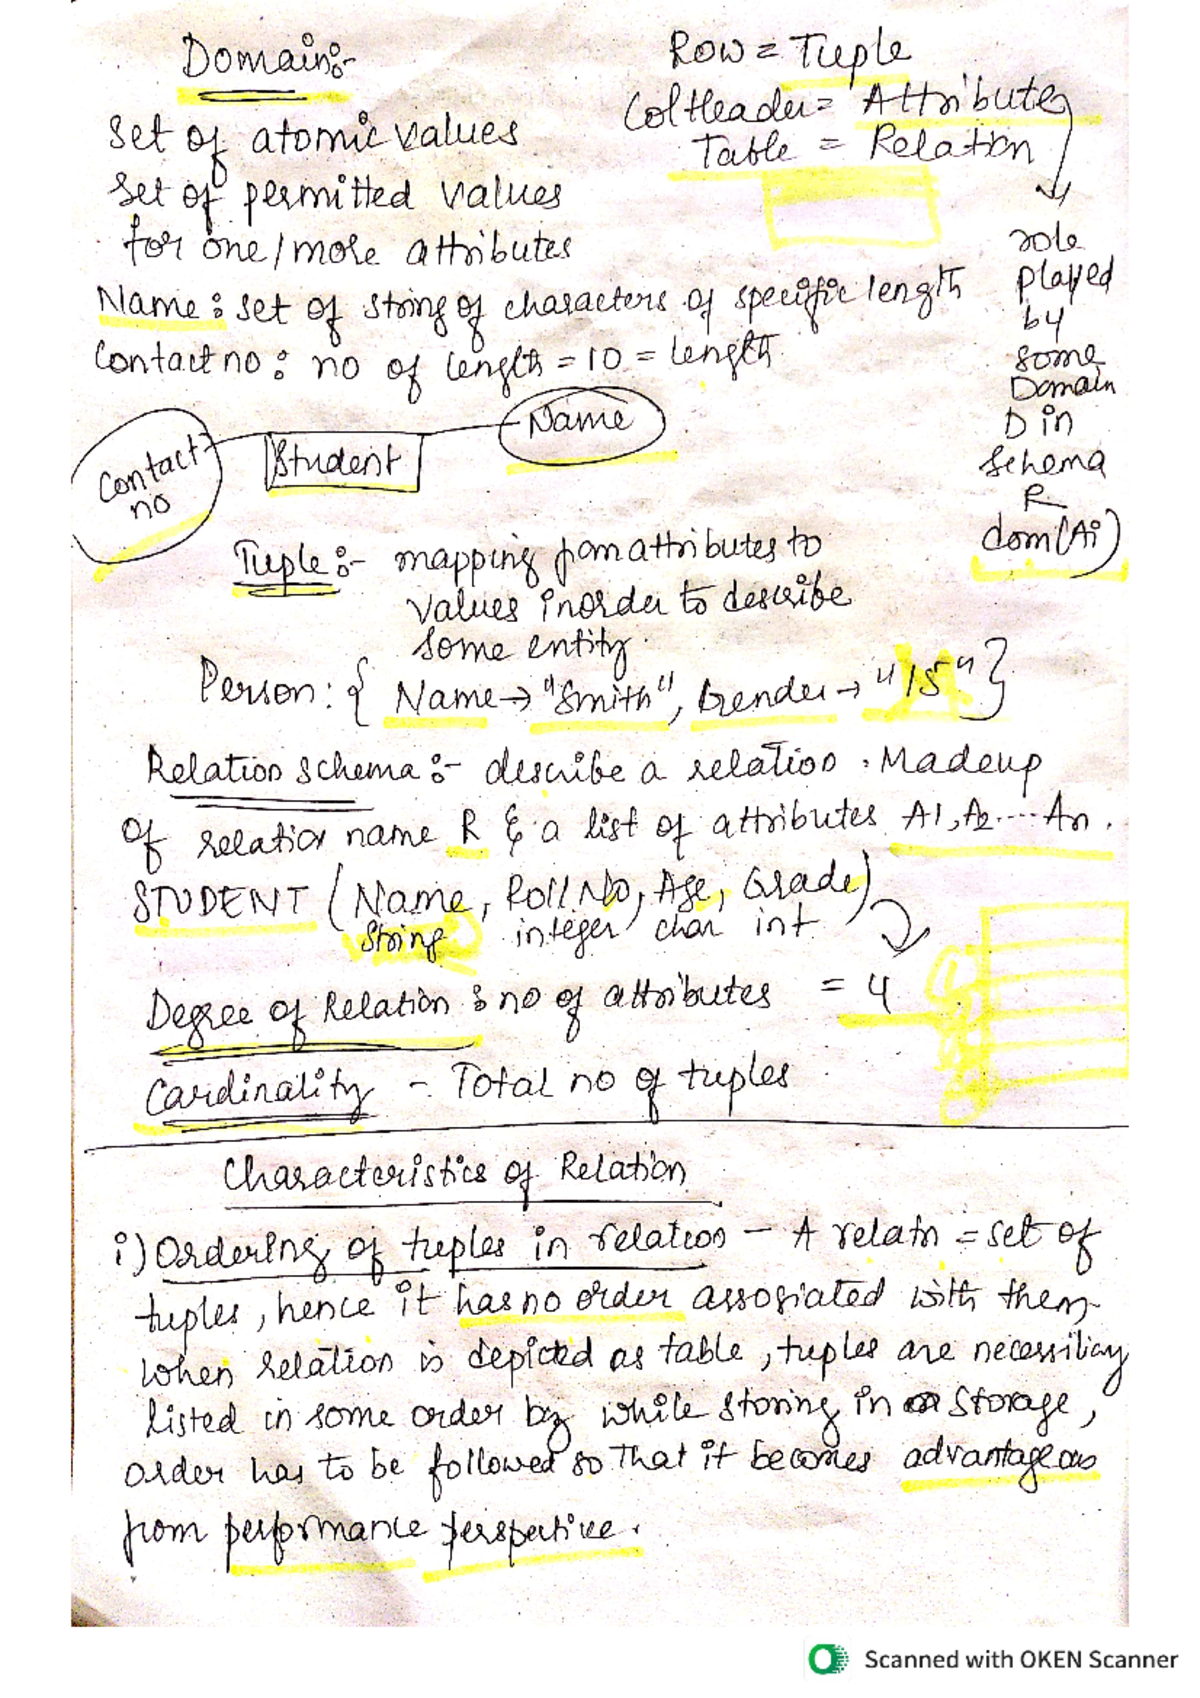 Domain:-
set of atomic values
set of permitted values
for one/more attributes
Row = Tuple
Col Header = Attribute
Table = Relation
role
played
by
some
Domain
D in
Schema
R
dom(Ai)
Name: set of string of characters of specific length
Contact no: no of length = 10 = length
Contact
no
Student
Name
Tuple:- mapping from attributes to
values inorder to describe
some entity.
Person: { Name→ "Smith", Gender→ "15" }
Relation schema:- describe a relation. Madeup
of relation name R & a list of attributes A1, A2....An.
STUDENT (Name, Roll.No, Age, Grade)
string integer char int
Degree of Relation: no of attributes = 4
Cardinality - Total no of tuples
Characteristics of Relation
i) Ordering of tuples in relation - A relatn = set of
tuples, hence it has no order assosiated with them,
when relation is depicted as table, tuples are necessiliay
listed in some order by while storing in storage,
order has to be followed so that it becomes advantageous
from performance perspective.
Scanned with OKEN Scanner